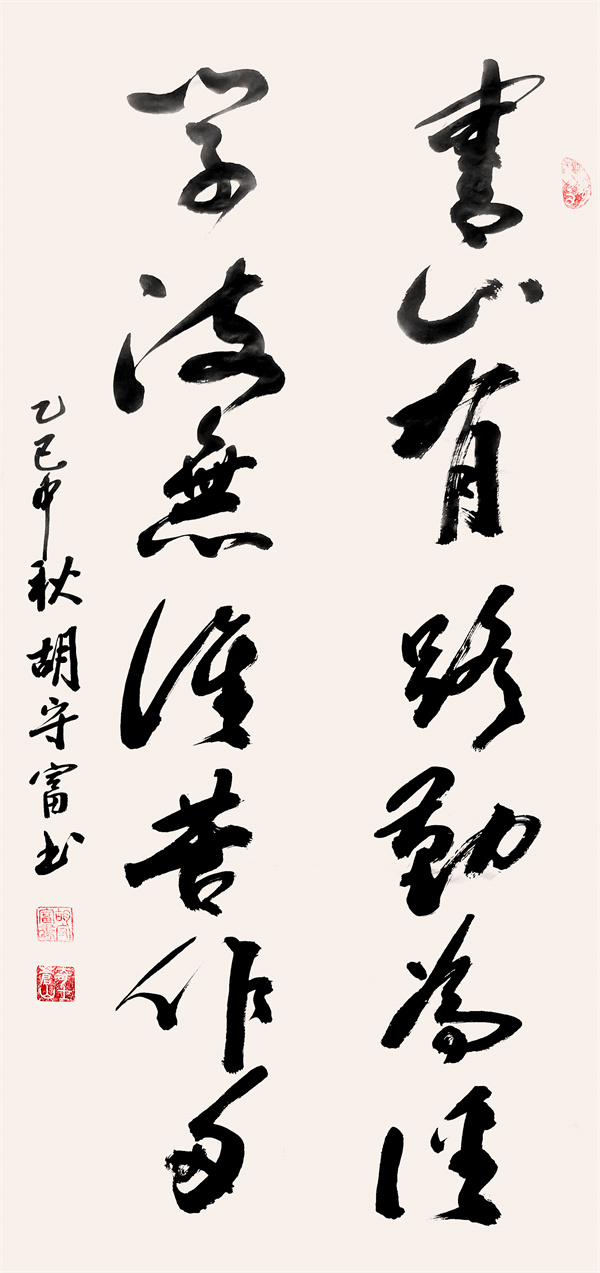 書山有路勤為徑
学海無涯苦作舟
乙巳中秋胡守富书